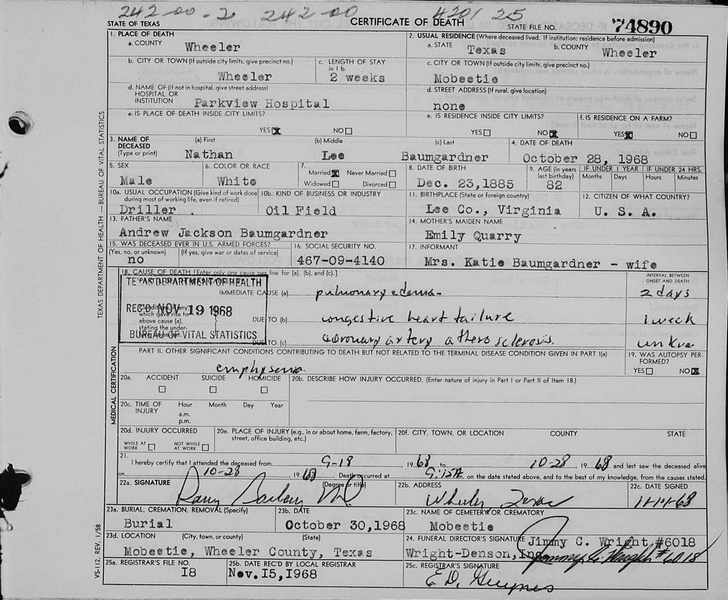 242-00-2 242-00 4201 25
STATE OF TEXAS CERTIFICATE OF DEATH STATE FILE NO. 74890
1. PLACE OF DEATH 2. USUAL RESIDENCE (Where deceased lived. If institution: residence before admission)
a. COUNTY Wheeler a. STATE Texas b. COUNTY Wheeler
b. CITY OR TOWN (If outside city limits, give precinct no.) c. LENGTH OF STAY c. CITY OR TOWN (If outside city limits, give precinct no.)
Wheeler in 1 b. 2 weeks Mobeetie
d. NAME OF (If not in hospital, give street address) d. STREET ADDRESS (If rural, give location)
HOSPITAL OR
INSTITUTION Parkview Hospital none
e. IS PLACE OF DEATH INSIDE CITY LIMITS? e. IS RESIDENCE INSIDE CITY LIMITS? f. IS RESIDENCE ON A FARM?
YES NO YES NO YES NO
3. NAME OF DECEASED (a) First (b) Middle (c) Last 4. DATE OF DEATH
(Type or print) Nathan Lee Baumgardner October 28, 1968
5. SEX 6. COLOR OR RACE 7. Married Never Married 8. DATE OF BIRTH 9. AGE (In years last birthday) IF UNDER 1 YEAR IF UNDER 24 HRS.
Months Days Hours Minutes
Male White Widowed Divorced Dec. 23,1885 82
10a. USUAL OCCUPATION (Give kind of work done during most of working life, even if retired) 10b. KIND OF BUSINESS OR INDUSTRY 11. BIRTHPLACE (State or foreign country) 12. CITIZEN OF WHAT COUNTRY?
Driller . Oil Field Lee Co., Virginia U. S. A.
13. FATHER'S NAME 14. MOTHER'S MAIDEN NAME
Andrew Jackson Baumgardner Emily Quarry
15. WAS DECEASED EVER IN U.S. ARMED FORCES? 16. SOCIAL SECURITY NO. 17. INFORMANT
(Yes, no, or unknown) (If yes, give war or dates of service)
no 467-09-4140 Mrs. Katie Baumgardner - wife
18. CAUSE OF DEATH [Enter only one cause per line for (a), (b), and (c).] INTERVAL BETWEEN ONSET AND DEATH
TEXAS DEPARTMENT OF HEALTH
IMMEDIATE CAUSE (a) pulmonary edema 2 days
REC'D NOV 19 1968
above cause (a), stating the under DUE TO (b) congestive heart failure 1 week
BUREAU OF VITAL STATISTICS
DUE TO (c) coronary artery atherosclerosis.
PART II. OTHER SIGNIFICANT CONDITIONS CONTRIBUTING TO DEATH BUT NOT RELATED TO THE TERMINAL DISEASE CONDITION GIVEN IN PART I(a) 19. WAS AUTOPSY PERFORMED?
emphysema YES NO
20a. ACCIDENT SUICIDE HOMICIDE 20b. DESCRIBE HOW INJURY OCCURRED. (Enter nature of injury in Part I or Part II of Item 18.)
20c. TIME OF INJURY Hour Month Day Year
a.m.
p.m.
20d. INJURY OCCURRED 20e. PLACE OF INJURY (e.g., in or about home, farm, factory, street, office building, etc.) 20f. CITY, TOWN, OR LOCATION COUNTY STATE
WHILE AT WORK NOT WHILE AT WORK
21. I hereby certify that I attended the deceased from 9-18 1968 to 10-28 1968 and last saw the deceased alive
on 10-28 1968 Death occurred at on the date stated above, and to the best of my knowledge, from the causes stated.
22a. SIGNATURE (Degree or title) 22b. ADDRESS 22c. DATE SIGNED
MD Wheeler Texas 11-14-68
23a. BURIAL, CREMATION, REMOVAL (Specify) 23b. DATE 23c. NAME OF CEMETERY OR CREMATORY
Burial October 30,1968 Mobeetie
23d. LOCATION (City, town, or county) (State) 24. FUNERAL DIRECTOR'S SIGNATURE Jimmy C. Wright #6018
Mobeetie, Wheeler County, Texas Wright-Denson,Inc Jimmy C. Wright #6018
25a. REGISTRAR'S FILE NO. 25b. DATE REC'D BY LOCAL REGISTRAR 25c. REGISTRAR'S SIGNATURE
18 Nov.15,1968
TEXAS DEPARTMENT OF HEALTH—BUREAU OF VITAL STATISTICS
MEDICAL CERTIFICATION
VS-112, REV. 1/58